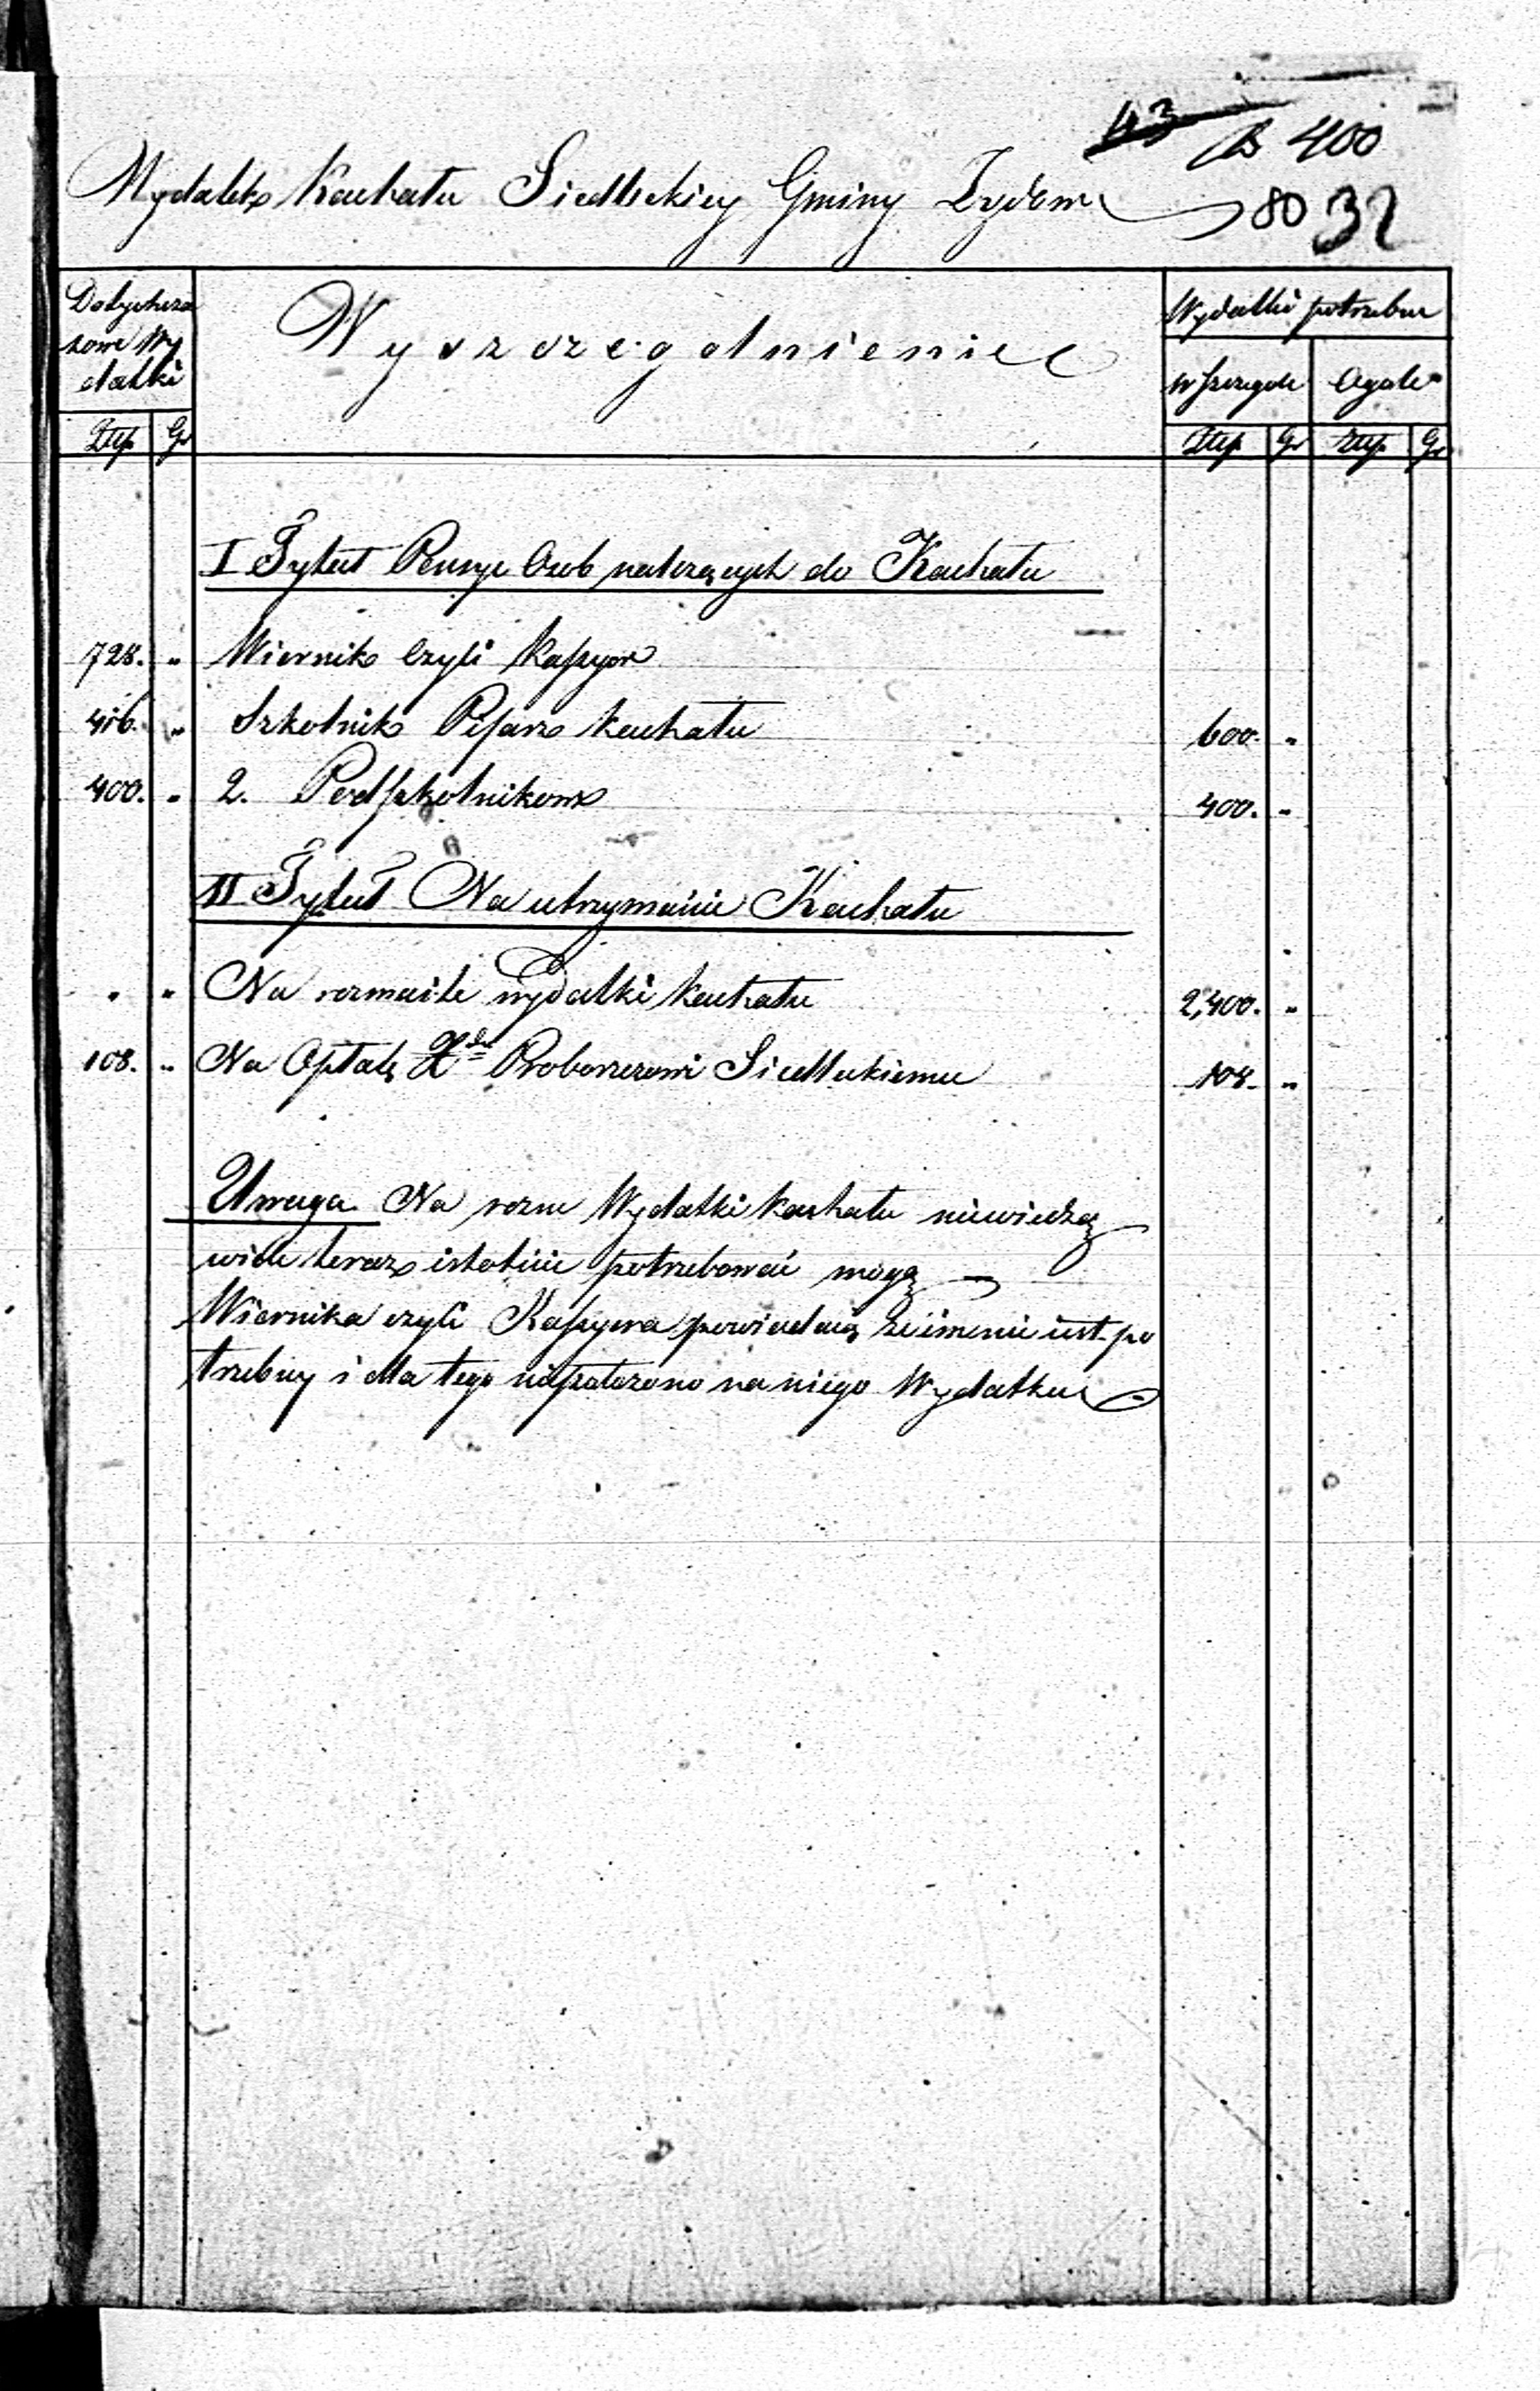 43 B 400
Wydatek Kachału Siedleckiey Gminy Żydow 80 32
Dotychcza
sowe Wy
datki
Wyszczegolnienie
Wydatki potrzebne
w szczegole Ogole
Złlp Gr
Złlp Gr Złlp Gr
I Tytuł Pensye Osob należących do Kachału
728. " Wiernik czyli Kassyer
416. " Szkolnik Pisarz Kachału 600. "
400. " 2. Podszkolnikow 400. "
II Tytuł Na utrzymanie Kachału
" " Na rozmaite wydatki Kachału 2,400. "
108. " Na Opłatę Proboszczowi Siedleckiemu 108. "
Uwaga Na rozne Wydatki Kachału niewiedzą
wiele teraz istotnie potrzebować mogą
Wiernika czyli Kassyera powiadaią że im nie iest po
trzebny i dla tego niepołożono na niego Wydatku